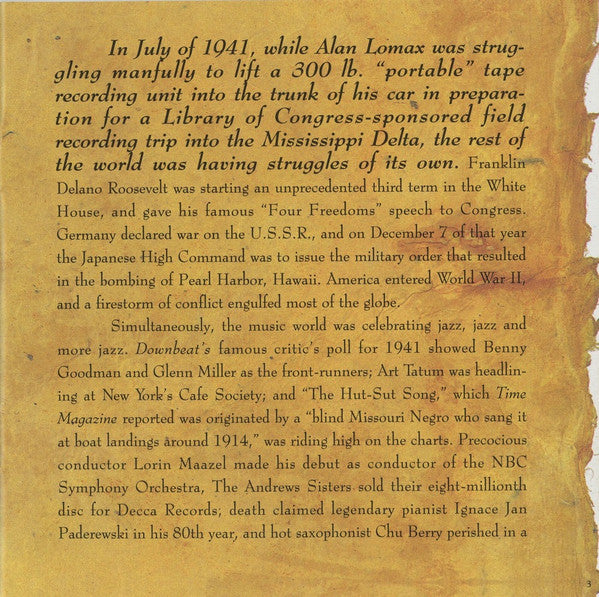 In July of 1941, while Alan Lomax was strug-
gling manfully to lift a 300 lb. “portable” tape
recording unit into the trunk of his car in prepara-
tion for a Library of Congress-sponsored field
recording trip into the Mississippi Delta, the rest of
the world was having struggles of its own. Franklin
Delano Roosevelt was starting an unprecedented third term in the White
House, and gave his famous “Four Freedoms” speech to Congress.
Germany declared war on the U.S.S.R., and on December 7 of that year
the Japanese High Command was to issue the military order that resulted
in the bombing of Pearl Harbor, Hawaii. America entered World War II,
and a firestorm of conflict engulfed most of the globe.
Simultaneously, the music world was celebrating jazz, jazz and
more jazz. Downbeat’s famous critic’s poll for 1941 showed Benny
Goodman and Glenn Miller as the front-runners; Art Tatum was headlin-
ing at New York’s Cafe Society; and “The Hut-Sut Song,” which Time
Magazine reported was originated by a “blind Missouri Negro who sang it
at boat landings around 1914,” was riding high on the charts. Precocious
conductor Lorin Maazel made his debut as conductor of the NBC
Symphony Orchestra, The Andrews Sisters sold their eight-millionth
disc for Decca Records; death claimed legendary pianist Ignace Jan
Paderewski in his 80th year, and hot saxophonist Chu Berry perished in a
3